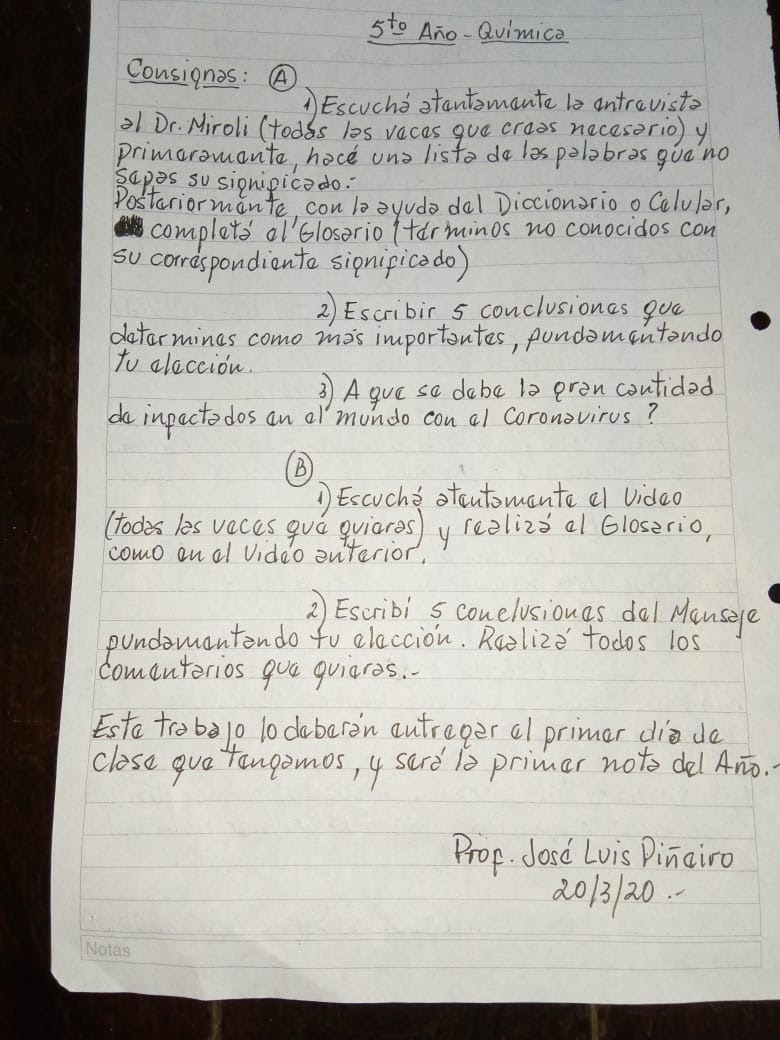 5to Año - Química
Consignas: A
1) Escuchá atentamente la entrevista
al Dr. Miroli (todas las veces que creas necesario) y
primeramente, hacé una lista de las palabras que no
sepas su significado.-
Posteriormente, con la ayuda del Diccionario o Celular,
completá el Glosario (términos no conocidos con
su correspondiente significado)
2) Escribir 5 conclusiones que
determines como más importantes, fundamentando
tu elección.
3) A que se debe la gran cantidad
de infectados en el mundo con el Coronavirus?
B
1) Escuchá atentamente el Video
(todas las veces que quieras) y realizá el Glosario,
como en el Video anterior.
2) Escribí 5 conclusiones del Mensaje
fundamentando tu elección. Realizá todos los
Comentarios que quieras.-
Este trabajo lo deberán entregar el primer día de
clase que tengamos, y será la primer nota del Año.-
Prof. José Luis Piñeiro
20/3/20.-
Notas